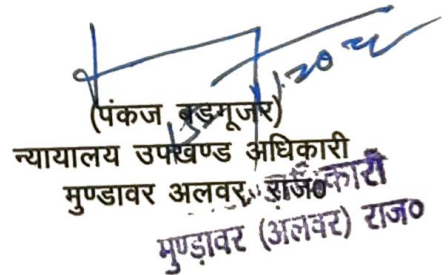 (पंकज बडगूजर)
न्यायालय उपखण्ड अधिकारी
मुण्डावर अलवर, राज०
कारी
मुण्ड़ावर (अलवर) राज०